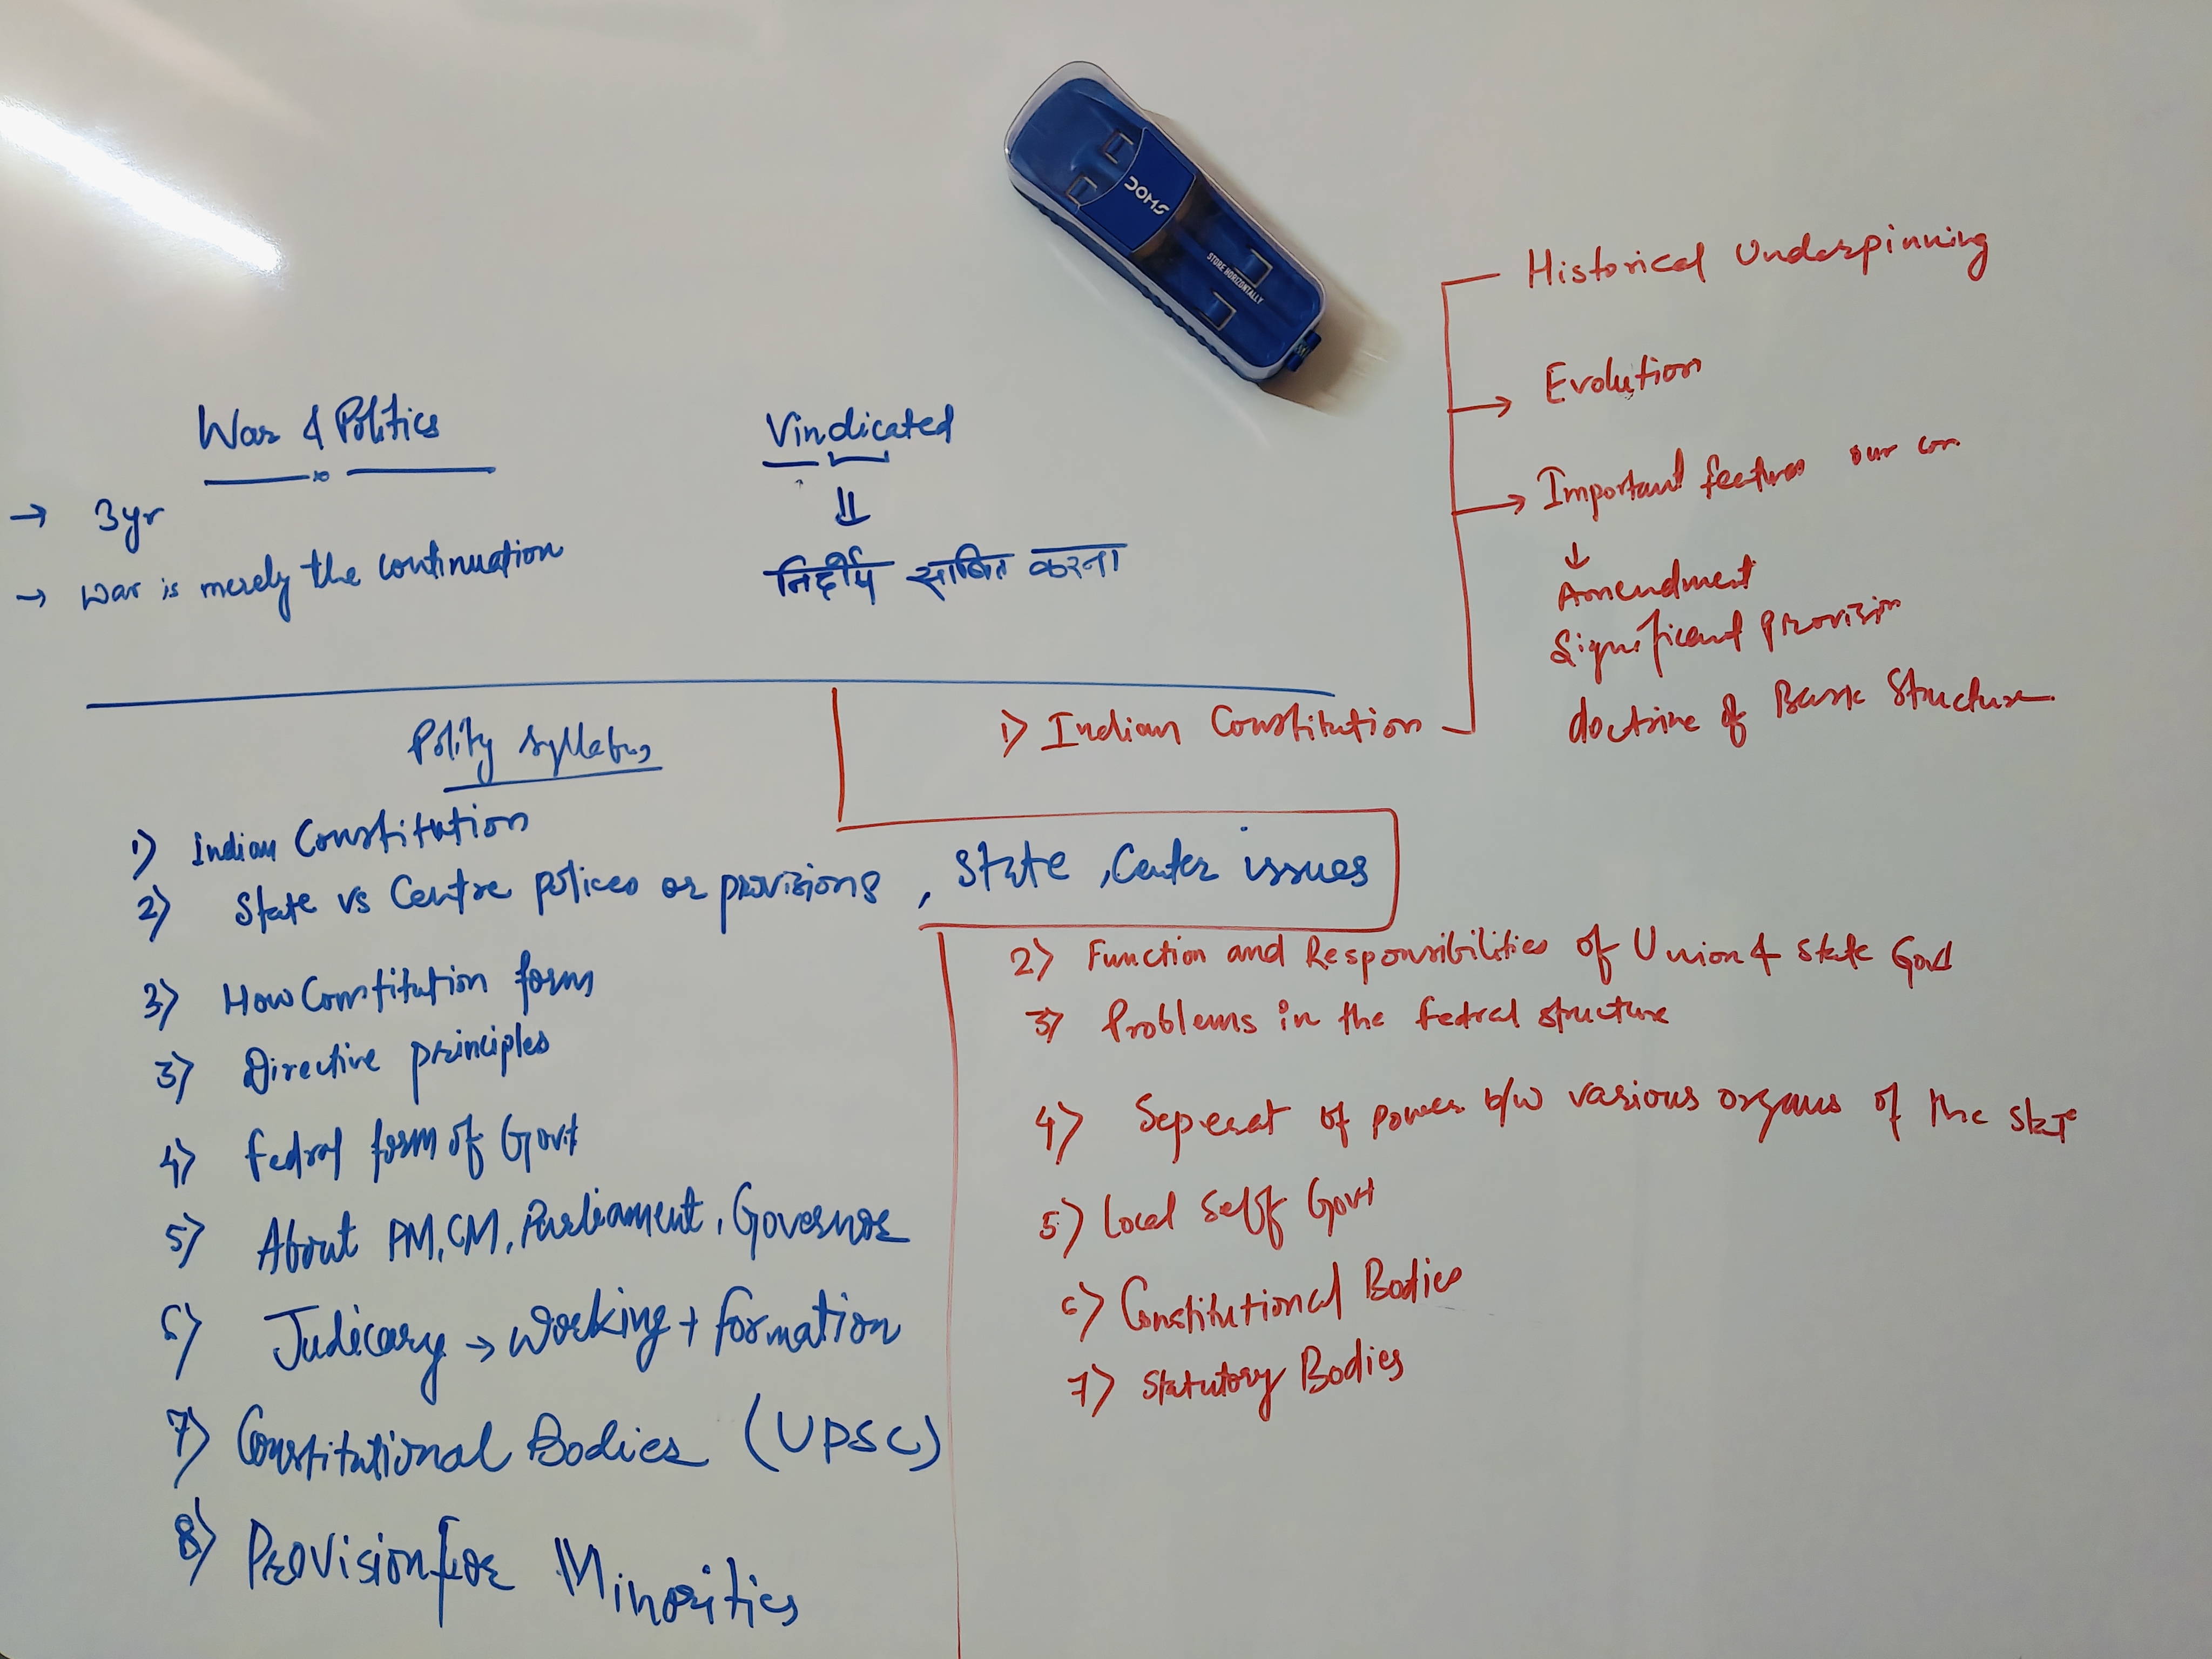 DOMS
STORE HORIZONTALLY
War & Politics
→ 3yr
→ war is merely the continuation
Vindicated
⇓
निर्दोष साबित करना
Historical Underpinning
→ Evolution
→ Important features our con.
↓
Amendment
Significant provision
doctrine of Basic Structure
Polity Syllabus
1) Indian Constitution
2) State vs Centre polices or provisions, State, Center issues
3) How Constitution form
3) Directive principles
4) Fedral form of Govt
5) About PM, CM, Parliament, Governor
6) Judicary → working + formation
7) Constitutional Bodies (UPSC)
8) Provision for Minorities
1) Indian Constitution
2) Function and Responsibilities of Union & State Govt
3) Problems in the fedral structure
4) Seperat of power b/w various organs of the stat
5) Local Self Govt
6) Constitutional Bodies
7) Statutory Bodies